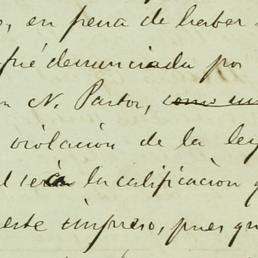 o, en pena de haber
fué denunciada por
n N. Pastor, como en
violacion de la ley
el será la calificacion q
este impreso, pues qu